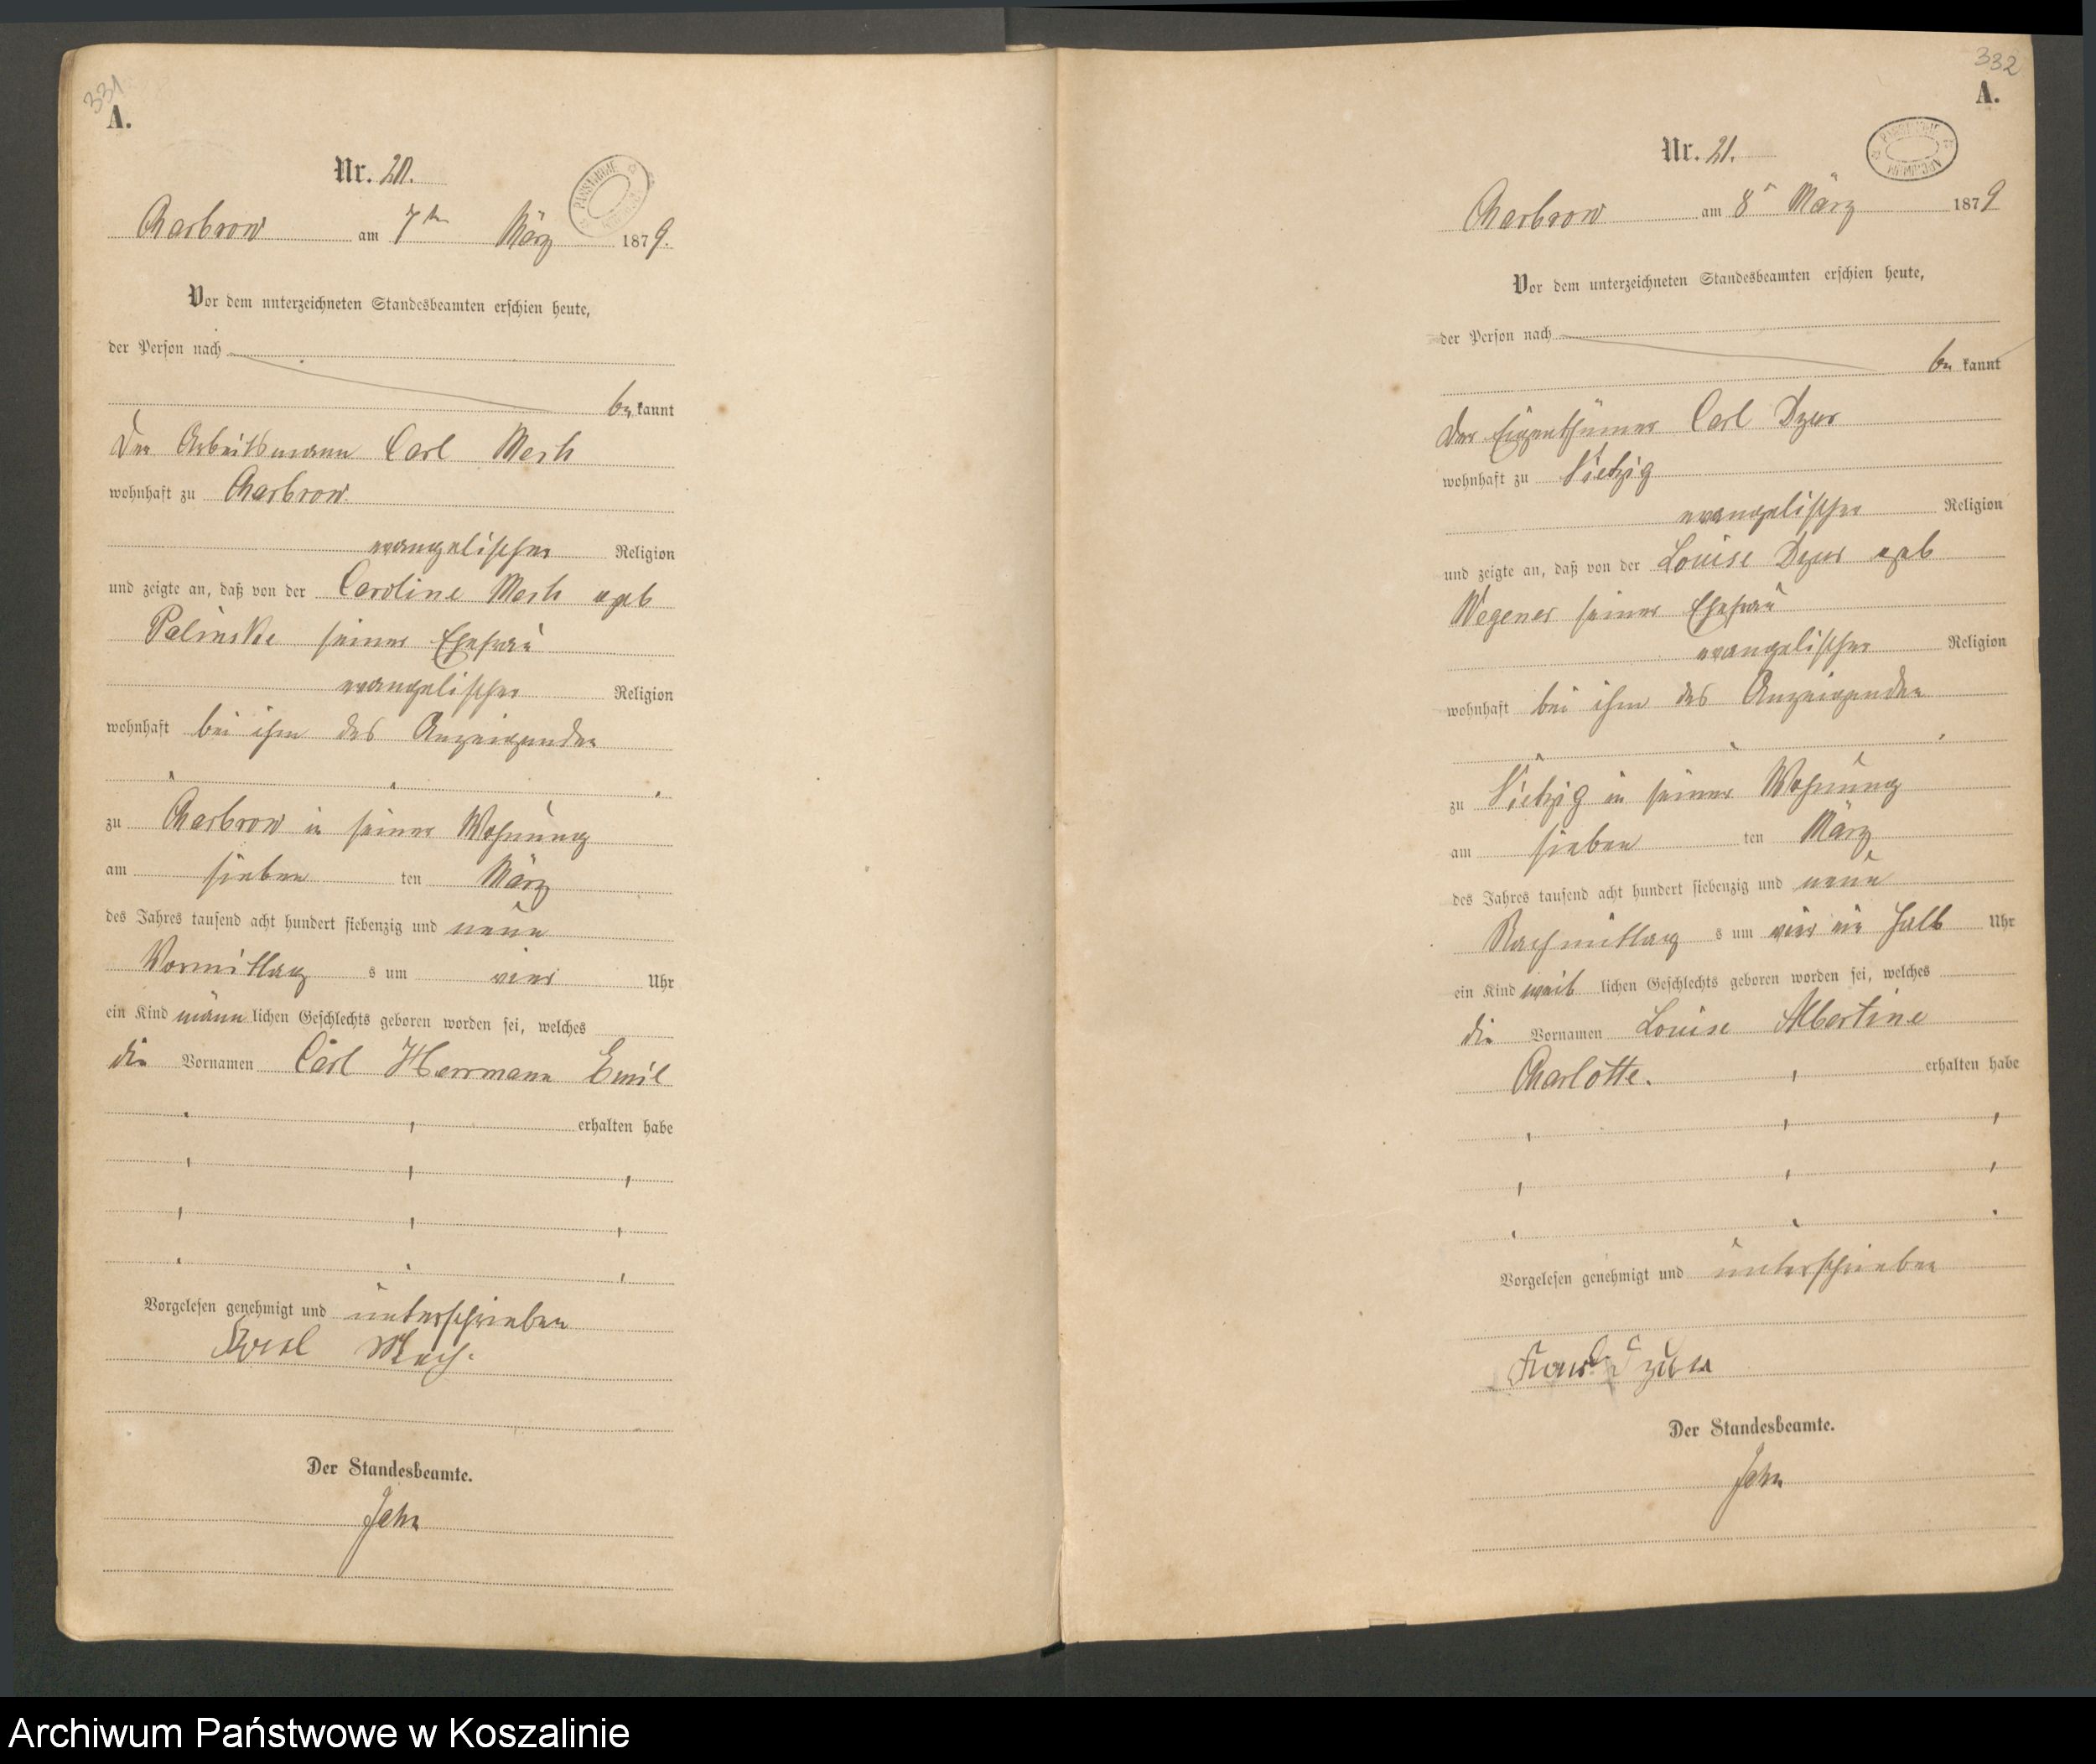 331
A.
Nr. 20.
Charbrow am 7ten März 1879.
Vor dem unterzeichneten Standesbeamten erschien heute,
der Person nach
bekannt
Der Arbeitsmann Carl
wohnhaft zu Charbrow
evangelischer Religion
und zeigte an, daß von der Caroline geb
Palinske seiner Ehefrau
evangelischer Religion
wohnhaft bei ihm des Anzeigenden
zu Charbrow in seiner Wohnung
am sieben ten März
des Jahres tausend acht hundert siebenzig und neun
Vormittag s um vier Uhr
ein Kind männlichen Geschlechts geboren worden sei, welches
die Vornamen Carl Herrmann Emil
erhalten habe
Vorgelesen genehmigt und unterschrieben
Der Standesbeamte.
Jahn
332
A.
Nr. 21.
Charbrow am 8t März 1879
Vor dem unterzeichneten Standesbeamten erschien heute,
der Person nach
bekannt
Der Eigenthümer Carl Dzur
wohnhaft zu Vietzig
evangelischer Religion
und zeigte an, daß von der Louise Dzur geb
Wegener seiner Ehefrau
evangelischer Religion
wohnhaft bei ihm des Anzeigenden
zu Vietzig in seiner Wohnung
am sieben ten März
des Jahres tausend acht hundert siebenzig und neun
Nachmittag s um vier ein halb Uhr
ein Kind weiblichen Geschlechts geboren worden sei, welches
die Vornamen Louise Albertine
Charlotte. erhalten habe
Vorgelesen genehmigt und unterschrieben
Der Standesbeamte.
Jahn
Archiwum Państwowe w Koszalinie